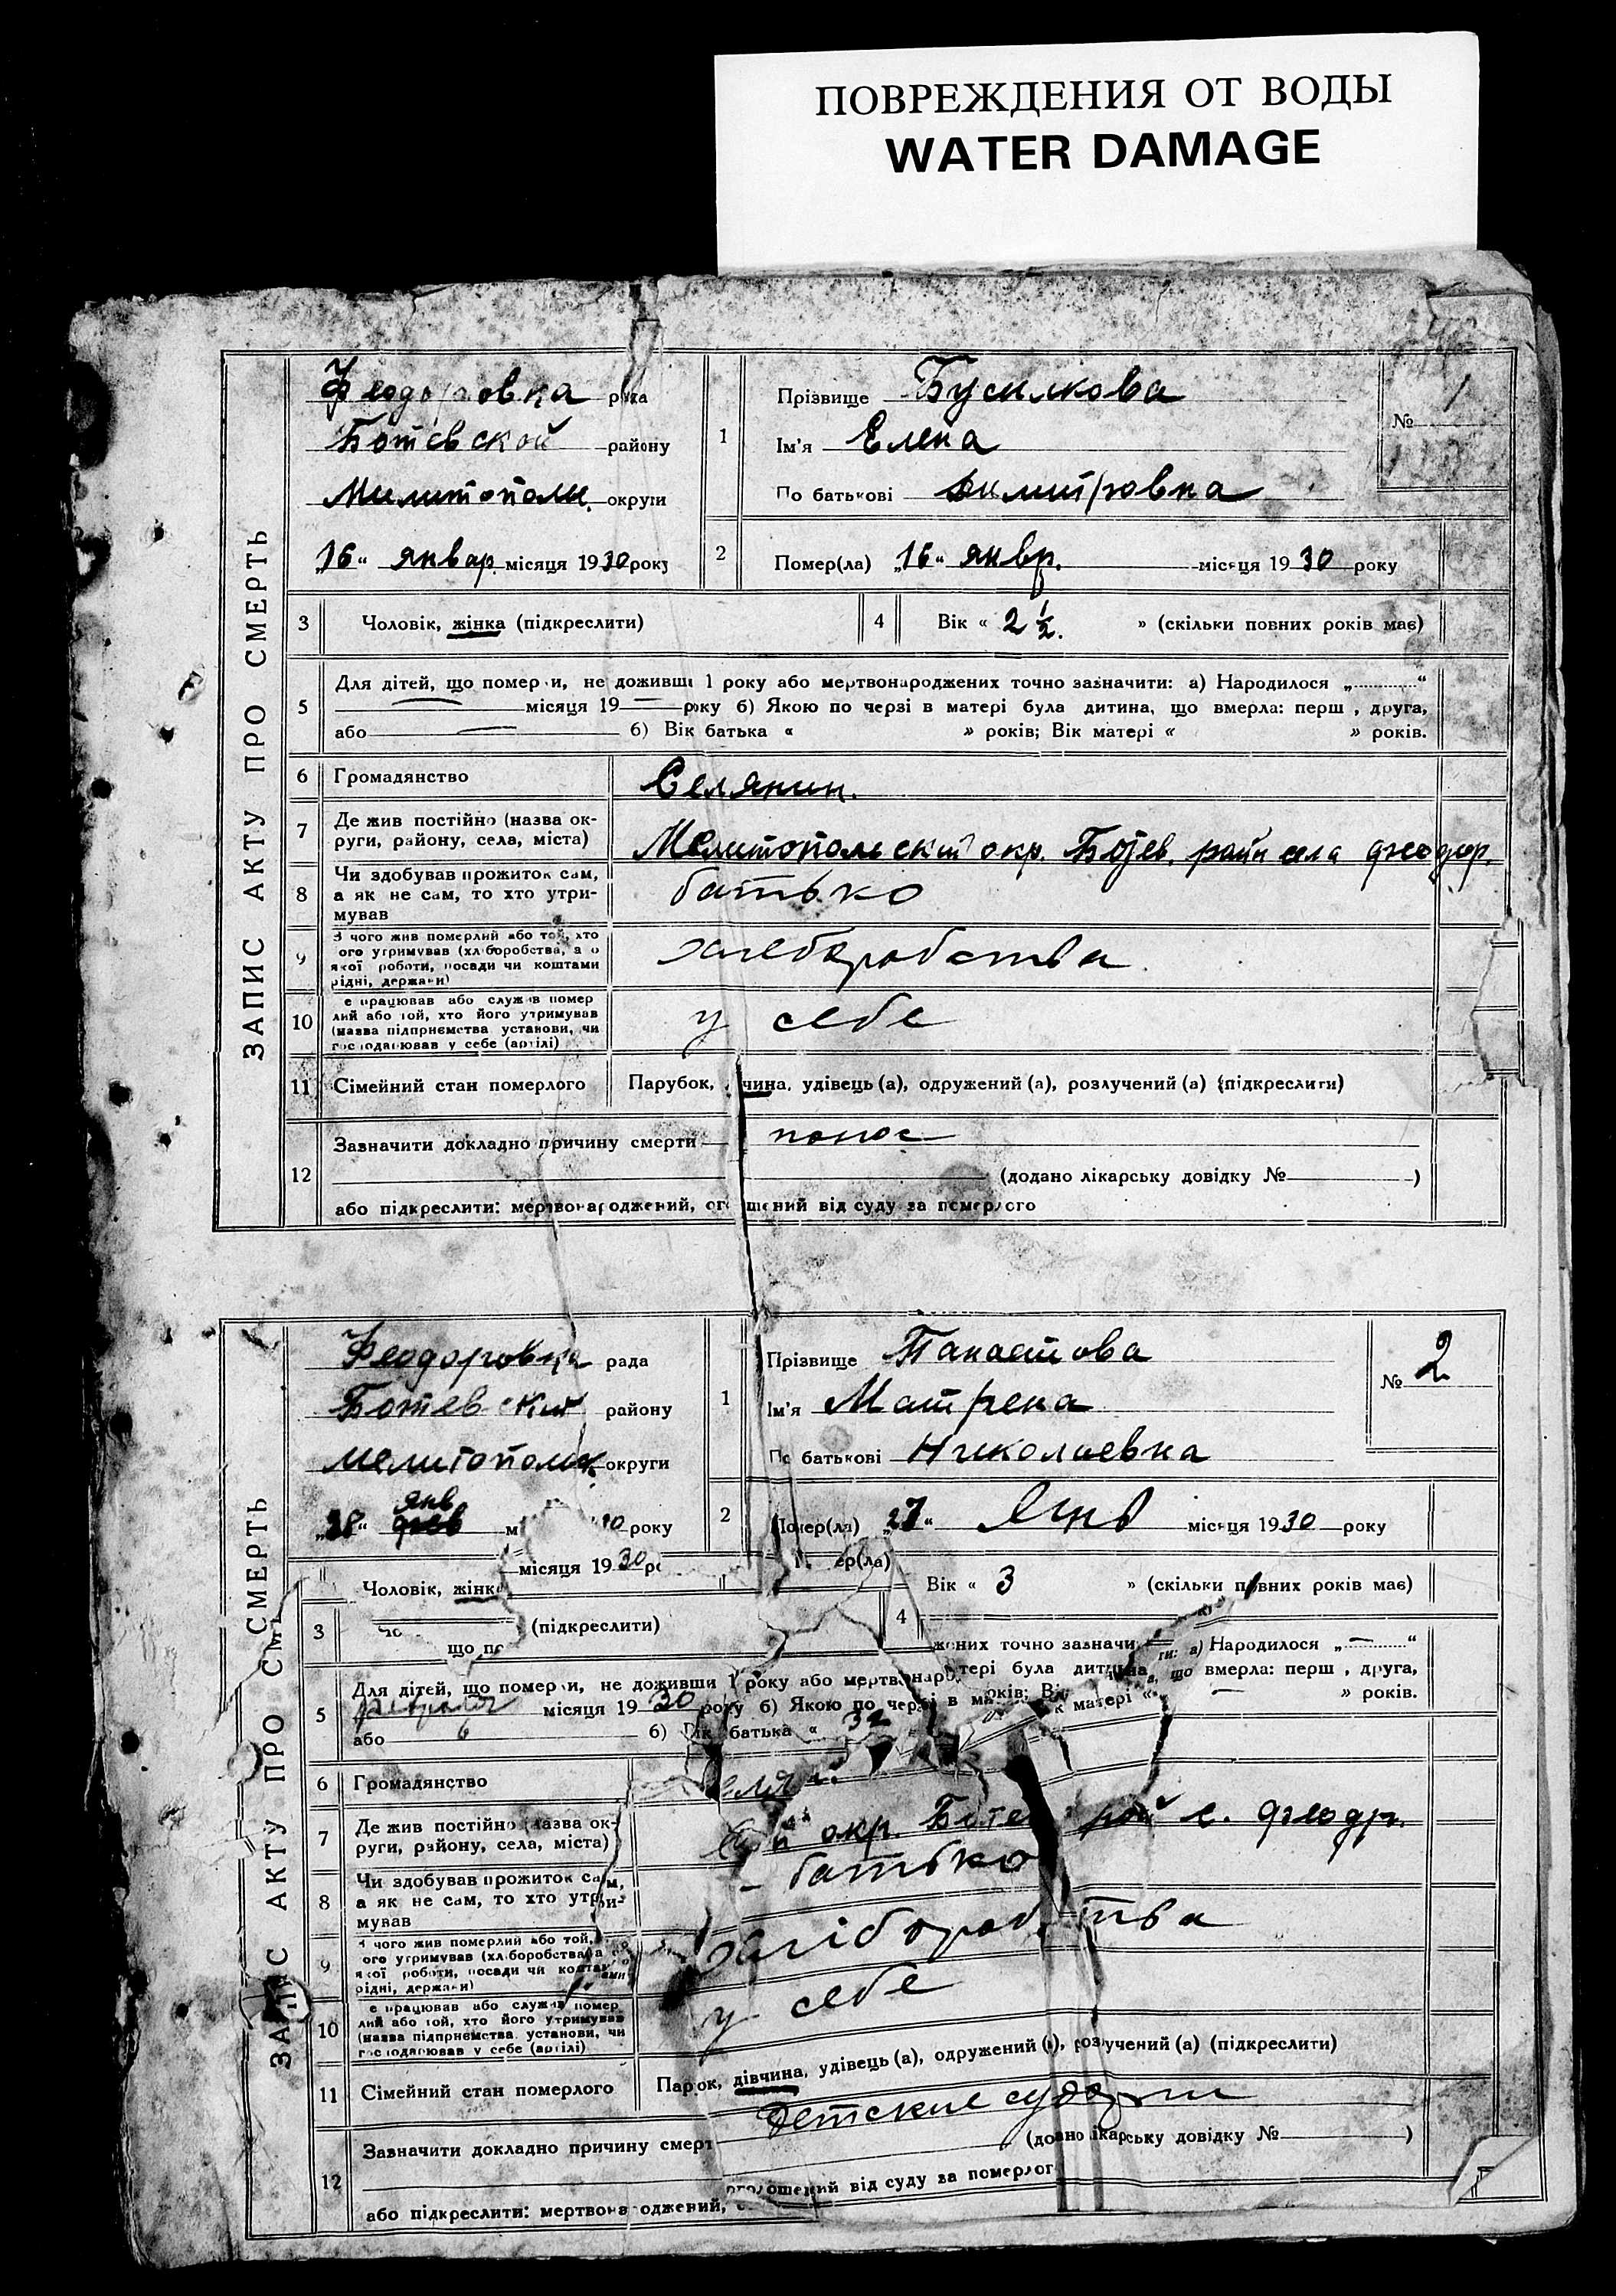 ПОВРЕЖДЕНИЯ ОТ ВОДЫ
WATER DAMAGE
ЗАПИС АКТУ ПРО СМЕРТЬ
Феодоровка рада
Ботевской району
Мелитополь округи
„16“ январ. місяця 1930 року
1
Прізвище Бусилкова
Ім'я Елена
По батькові Димитровна
№ 1
2
Помер(ла) „16“ янвр. місяця 1930 року
3 Чоловік, жінка (підкреслити)
4 Вік « 2 ½. » (скільки повних років має)
5
Для дітей, що померли, не доживши 1 року або мертвонароджених точно зазначити: а) Народилося „ “
місяця 19 року б) Якою по черзі в матері була дитина, що вмерла: перш , друга,
або б) Вік батька « » років; Вік матері « » років.
6 Громадянство Селянин.
7 Де жив постійно (назва ок-
руги, району, села, міста) Мелитопольский окр. Ботев. район села Феодор.
8 Чи здобував прожиток сам,
а як не сам, то хто утри-
мував батько
9 З чого жив померлий або той, хто
ого утримував (хліборобства, а о
якої роботи, посади чи коштами
рідні, держави) хлеборобства
10 е працював або служив помер
лий або той, хто його утримував
(назва підприємства установи, чи
господарював у себе (артілі) у себе
11 Сімейний стан померлого Парубок, чина, удівець (а), одружений (а), розлучений (а) (підкреслити)
12
Зазначити докладно причину смерти понос
(додано лікарську довідку № )
або підкреслити: мертвонароджений, ог шений від суду за померлого
ЗАПИС АКТУ ПРО СМЕРТЬ
Феодоровка рада
Ботевский району
Мелитопольск округи
„28“ янв м 0 року
1
Прізвище Танастова
Ім'я Матрена
По батькові Николаевна
№ 2
2
Помер(ла) „27“ Янв місяця 1930 року
місяця 1930 р ер(ла)
Чоловік, жінка
Вік « 3 » (скільки повних років має)
3 (підкреслити)
4
що по
жених точно зазначи ти: а) Народилося „ “
тері була дитина, що вмерла: перш , друга,
5
Для дітей, що померли, не доживши 1 року або мертвонаро
февраля місяця 1930 року б) Якою по черзі в ма років; Ві к матері « » років.
або 6 б) Вік батька « 32
6 Громадянство
7 Де жив постійно (назва ок-
руги, району, села, міста) окр. Ботев рай с. Феодр.
8 Чи здобував прожиток сам,
а як не сам, то хто утри-
мував - батько
9 чого жив померлий або той,
ого утримував (хліборобства, а о
якої роботи, посади чи коштами
рідні, держави) хліборобства
10 е працював або служив помер
лий або той, хто його утримував
(назва підприємства установи, чи
господарював у себе (артілі) у себе
11 Сімейний стан померлого Парубок, дівчина, удівець (а), одружений (а), розлучений (а) (підкреслити)
12
Зазначити докладно причину смерт Детские судорги
(додано лікарську довідку № )
або підкреслити: мертвонароджений, оголошений від суду за померлог